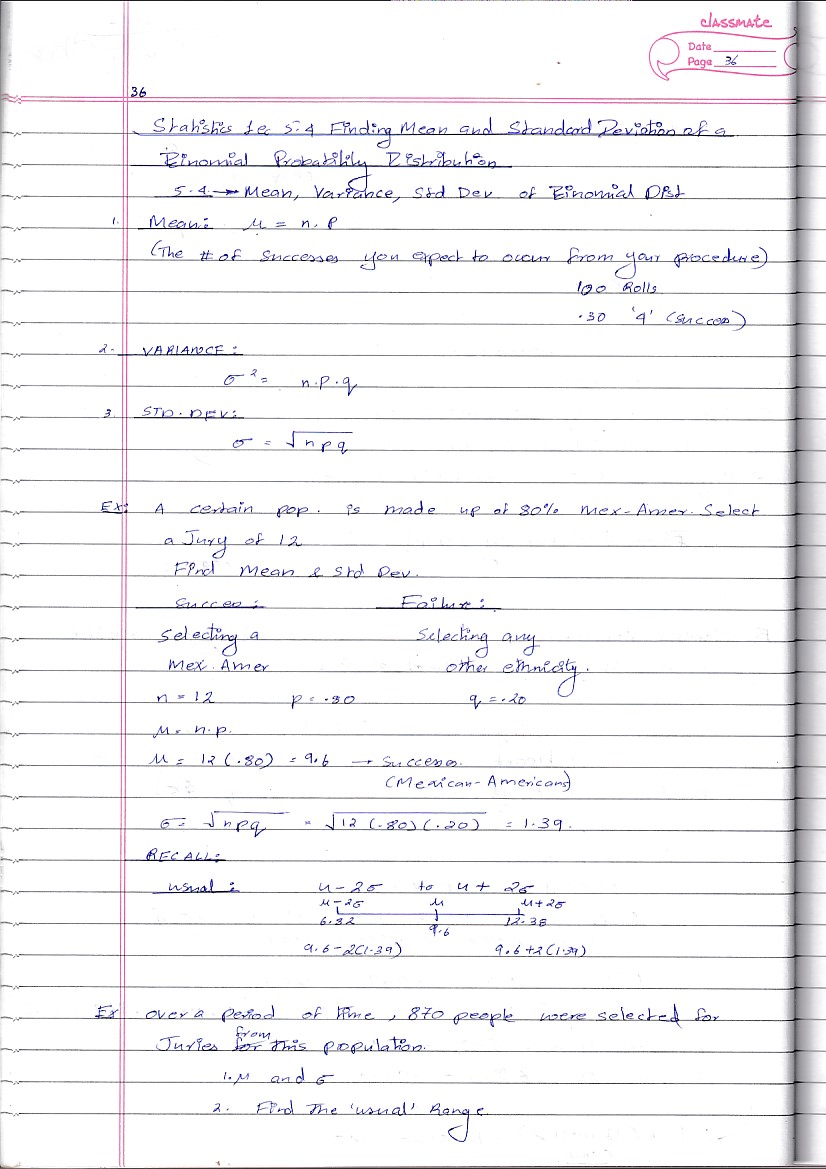 classmate
Date
Page 36
36
Statistics Lec 5.4 Finding Mean and Standard Deviation of a
Binomial Probability Distribution
5.4 → Mean, Variance, Std Dev of Binomial Dist
1. Mean: μ = n.p
(The # of successes you expect to occur from your procedure)
100 Rolls
.30 '4' (success)
2. VARIANCE:
σ² = n.p.q
3. STD. DEV:
σ = √npq
Ex: A certain pop. is made up of 80% Mex-Amer. Select
a Jury of 12
Find Mean & Std Dev.
Success: Failure:
Selecting a Selecting any
Mex. Amer other ethnicity.
n = 12 p = .80 q = .20
μ = n.p.
μ = 12 (.80) = 9.6 → Successes.
(Mexican-Americans)
σ = √npq = √12 (.80) (.20) = 1.39.
RECALL:
usual: μ - 2σ to μ + 2σ
μ - 2σ μ μ + 2σ
6.82 9.6 12.38
9.6 - 2(1.39) 9.6 + 2(1.39)
Ex over a period of time, 870 people were selected for
from
Juries for this population.
1. μ and σ
2. Find the 'usual' Range.